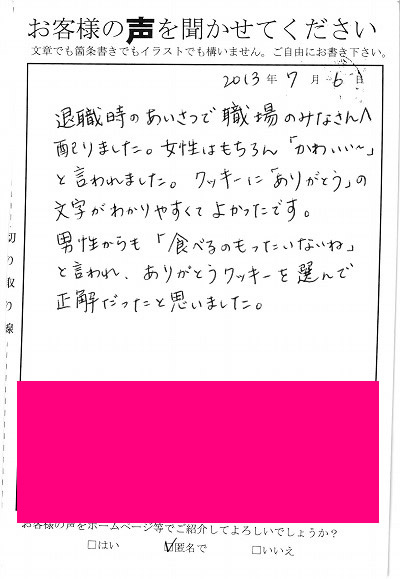 お客様の声を聞かせてください
文章でも箇条書きでもイラストでも構いません。ご自由にお書き下さい。
2013年 7月 6日
退職時のあいさつで職場のみなさんへ
配りました。女性はもちろん「かわいい〜」
と言われました。クッキーに「ありがとう」の
文字がわかりやすくてよかったです。
男性からも「食べるのもったいないね」
と言われ、ありがとうクッキーを選んで
正解だったと思いました。
切り取り線
お客様の声をホームページ等でご紹介してよろしいでしょうか?
□はい ☑匿名で □いいえ